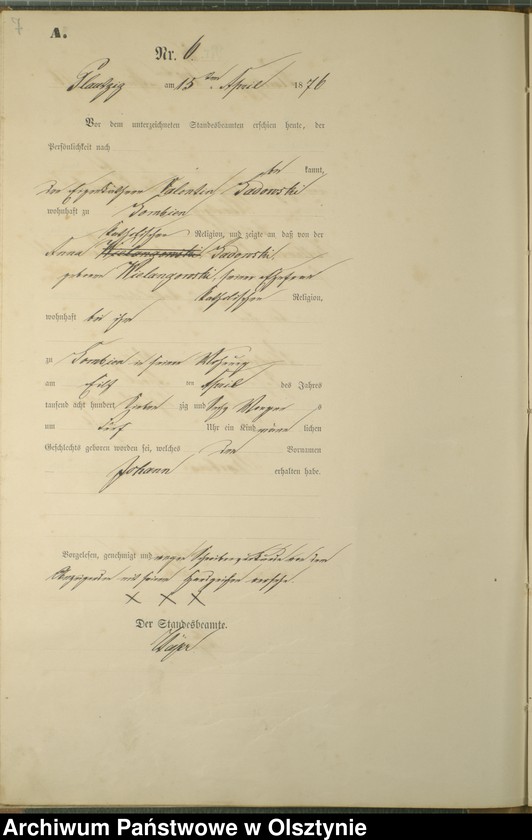 A.
Nr. 6
Plautzig am 15 ten April 1876
Vor dem unterzeichneten Standesbeamten erschien heute, der
Persönlichkeit nach
be kannt,
der Eigenkäthner Valentin Sadowski
wohnhaft zu
katholischer Religion, und zeigte an, daß von der
Anna Sadowski
geborene Wielangowski, seiner Ehefrau
katholischer Religion,
wohnhaft bei ihm
zu in seiner Wohnung
am Elf ten April des Jahres
tausend acht hundert sieben zig und Sechs Morgens
um Fünf Uhr ein Kind männ lichen
Geschlechts geboren worden sei, welches den Vornamen
Johann erhalten habe.
Vorgelesen, genehmigt und wegen Schreibensunkunde von dem
Anzeigenden mit seinem Handzeichen versehen
X X X
Der Standesbeamte.
Archiwum Państwowe w Olsztynie